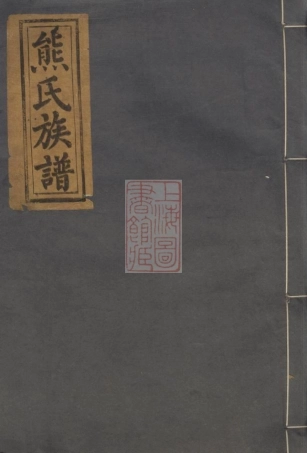 熊氏族譜
上海圖
書館藏